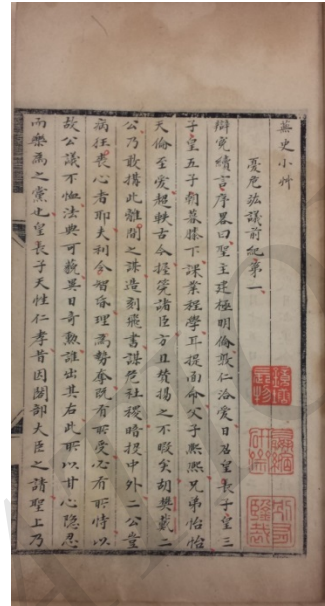 蕪史小草
憂危竑議前紀第一
辯冤續言序畧曰聖主建極明倫敦仁洽愛日召皇長子皇三
子皇五子朝暮膝下課業程學耳提面命父子熙熙兄弟怡怡
天倫至愛超軼古今提筦諸臣方且贊揚之不暇矣胡樊戴二
公乃敢搆此離間之謀造刻飛書謀危社稷暗投中外二公豈
病狂喪心者耶夫利令智昏理為勢奪既有所受必有所恃以
故公議不恤法典可藐異日奇勲誰出其右此所以甘心隱忍
而樂為之黨也皇長子天性仁孝昔因閣部大臣之請聖上乃